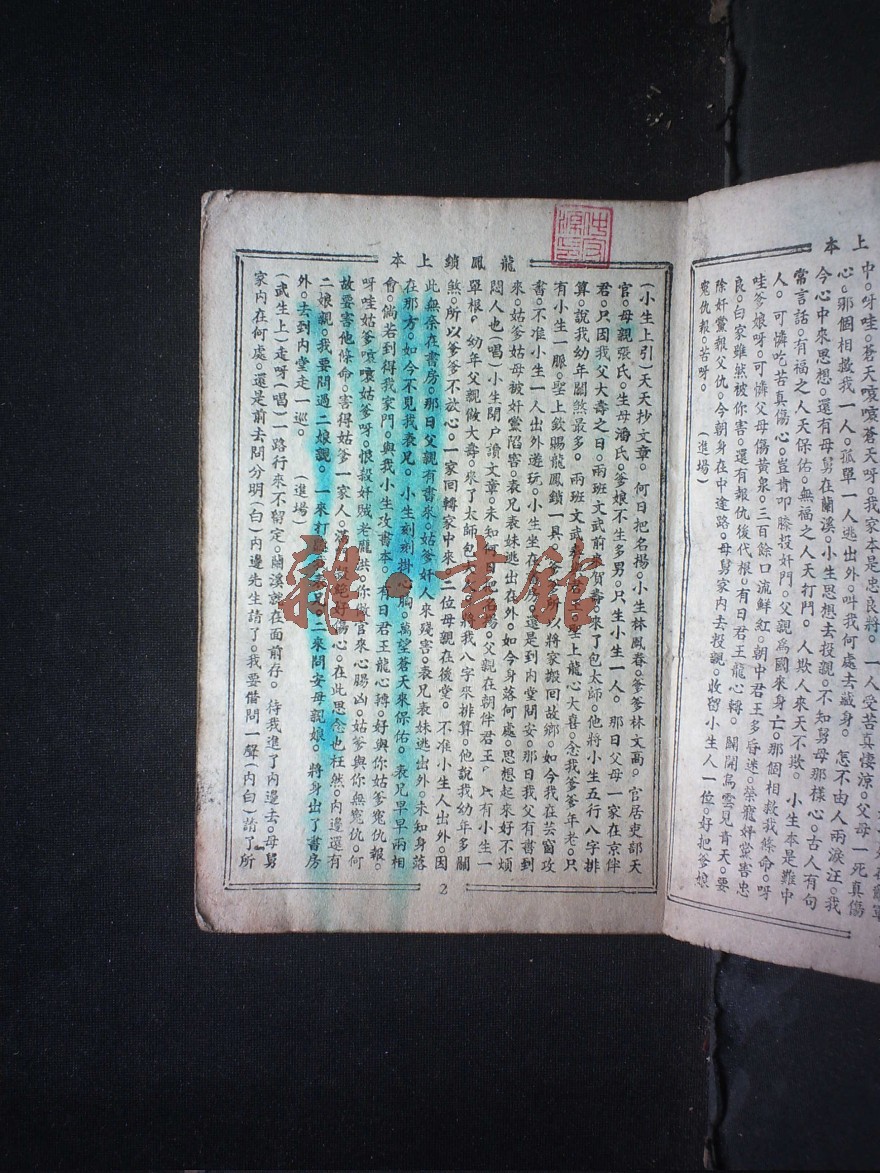 上本
中。呀哇。蒼天噯噯蒼天呀。我家本是忠良將。一人受苦真悽涼。父母一死真傷
心。那個相救我一人。孤單一人逃出外。叫我何處去藏身。怎不由人兩淚汪。我
今心中來思想。還有母舅在蘭溪。小生思想去投親。不知舅母那樣心。古人有句
常言話。有福之人天保佑。無福之人天打鬥。人欺人來天不欺。小生本是難中
人。可憐吃苦真傷心。豈肯叩膝投奸門。父親為國來身亡。那個相救我條命。呀
哇爹娘呀。可憐父母傷黃泉。三百餘口流鮮紅。朝中君王多昏迷。榮寵奸黨害忠
良。白家雖然被你害。還有報仇後代根。有日君王龍心轉。關開烏雲見青天。要
除奸黨報父仇。今朝身在中途路。母舅家內去投親。收留小生人一位。好把爹娘
寃仇報。苦呀。(進場)
龍鳳鎖上本
(小生上引)天天抄文章。何日把名揚。小生林鳳春。爹爹林文高。官居吏部天
官。母親張氏。生母潘氏。爹娘不生多男。只生小生一人。那日父母一家在京伴
君。只因我父大壽之日。兩班文武前來賀壽。來了包太師。他將小生五行八字排
算。說我幼年關煞最多。兩班文武奏君王。聖上龍心大喜。念我爹爹年老。只
有小生一脈。聖上欽賜龍鳳鎖一具。爹爹所人將家搬回故鄉。如今我在芸窗攻
書。不准小生一人出外遊玩。小生坐在書房。還是到內堂問安。那日我父有書到
來。姑爹姑母被奸黨陷害。表兄表妹逃出在外。如今身落何處。思想起來好不煩
悶人也(唱)小生閉戶讀文章。未知何日把名揚。父親在朝伴君王。只有小生一
單根。幼年父親做大壽。來了太師包大人。將我八字來排算。他說我幼年多關
煞。所以爹爹不放心。一家回轉家中來。一位母親在後堂。不准小生人出外。因
此無奈在書房。那日父親有書來。姑爹奸人來殘害。表兄表妹逃出外。未知身落
在那方。如今不見我表兄。小生刻刻掛心胸。萬望蒼天來保佑。表兄早早兩相
會。倘若到得我家門。與我小生攻書本。有日君王龍心轉。好與你姑爹寃仇報。
呀哇姑爹噯噯姑爹呀。恨殺奸賊老龐洪。你做官來心腸凶。姑爹與你無寃仇。何
故要害他條命。害得姑爹一家人。滿門殺絕好傷心。在此思念也枉然。內邊還有
二娘親。我要問過二娘親。一來打聽表兄。二來問安母親娘。將身出了書房
外。去到內堂走一巡。(進場)
(武生上)走呀(唱)一路行來不留定。蘭溪就在面前存。待我進了內邊去。母舅
家內在何處。還是前去問分明(白)內邊先生請了。我要借問一聲(內白)請了所
2
雜·書館